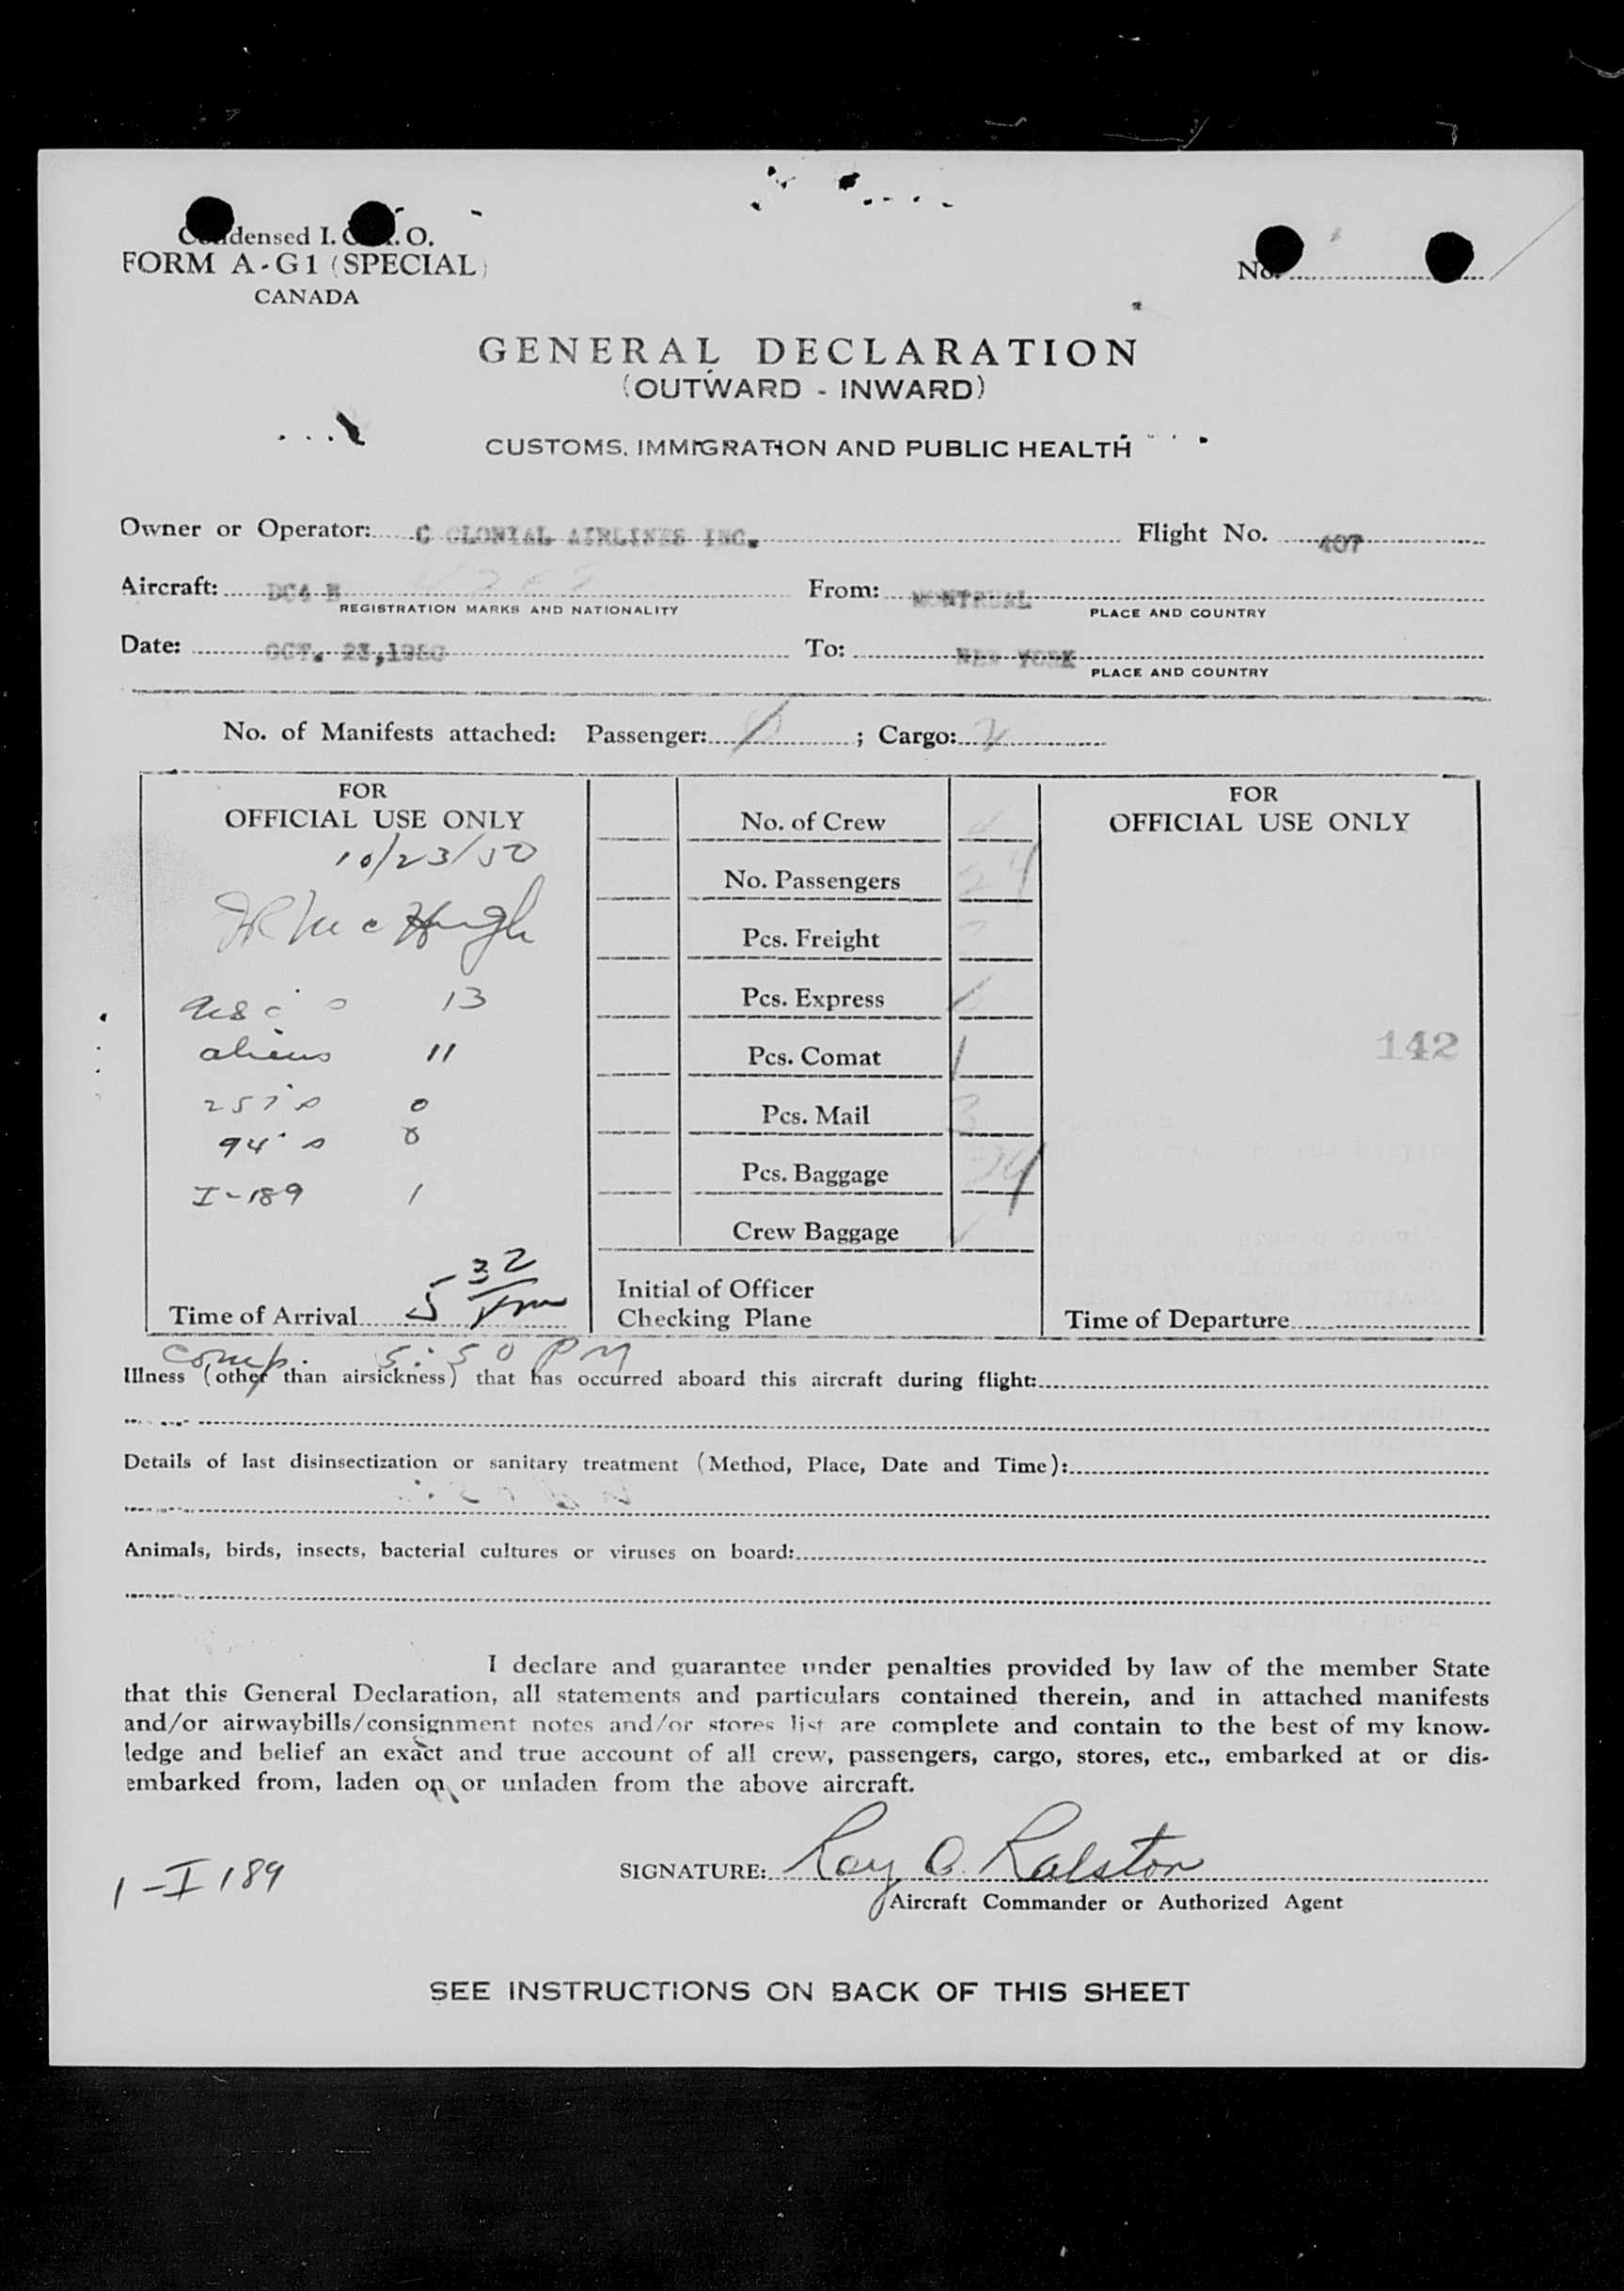 Condensed I. C. A. O.
FORM A-G1 (SPECIAL)
CANADA
No.
GENERAL DECLARATION
(OUTWARD - INWARD)
CUSTOMS, IMMIGRATION AND PUBLIC HEALTH
Owner or Operator: C OLONIAL AIRLINES INC. Flight No. 407
Aircraft: DC4 N From: MONTREAL
REGISTRATION MARKS AND NATIONALITY PLACE AND COUNTRY
Date: OCT. 23,1950 To: NEW YORK
PLACE AND COUNTRY
No. of Manifests attached: Passenger: 1 ; Cargo: 2
FOR
OFFICIAL USE ONLY
10/23/50
JR McHugh
13
aliens 11
257's 0
94's 0
I-189 1
Time of Arrival 5 32 pm
No. of Crew
No. Passengers 24
Pcs. Freight
Pcs. Express
Pcs. Comat 1
Pcs. Mail 3
Pcs. Baggage 24
Crew Baggage
Initial of Officer
Checking Plane
FOR
OFFICIAL USE ONLY
142
Time of Departure
comp. 5:50 PM
Illness (other than airsickness) that has occurred aboard this aircraft during flight:
Details of last disinsectization or sanitary treatment (Method, Place, Date and Time):
Animals, birds, insects, bacterial cultures or viruses on board:
I declare and guarantee under penalties provided by law of the member State
that this General Declaration, all statements and particulars contained therein, and in attached manifests
and/or airwaybills/consignment notes and/or stores list are complete and contain to the best of my know-
ledge and belief an exact and true account of all crew, passengers, cargo, stores, etc., embarked at or dis-
embarked from, laden on or unladen from the above aircraft.
1-I 189
SIGNATURE: Roy C. Ralston
Aircraft Commander or Authorized Agent
SEE INSTRUCTIONS ON BACK OF THIS SHEET